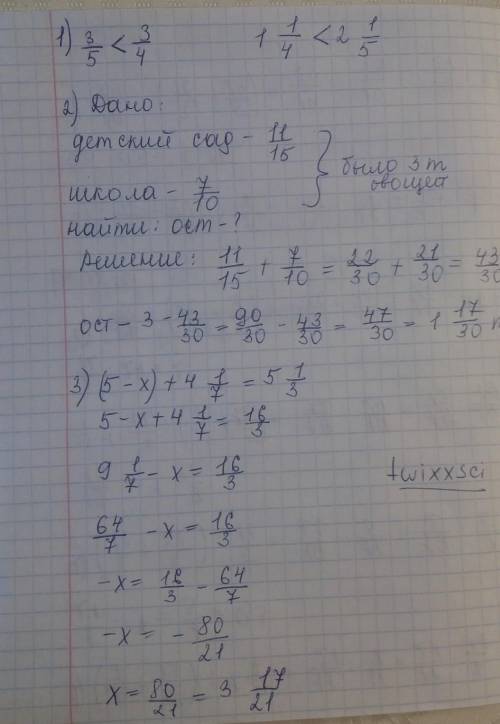 1) 3/5 < 3/4 1 1/4 < 2 1/5
2) Дано:
детский сад - 11/15
школа - 7/10 } было 3 т овощей
найти: ост - ?
Решение: 11/15 + 7/10 = 22/30 + 21/30 = 43/30
ост - 3 - 43/30 = 90/30 - 43/30 = 47/30 = 1 17/30 т
3) (5 - x) + 4 1/7 = 5 1/3
5 - x + 4 1/7 = 16/3
9 1/7 - x = 16/3
twixxsci
64/7 - x = 16/3
-x = 16/3 - 64/7
-x = - 80/21
x = 80/21 = 3 17/21